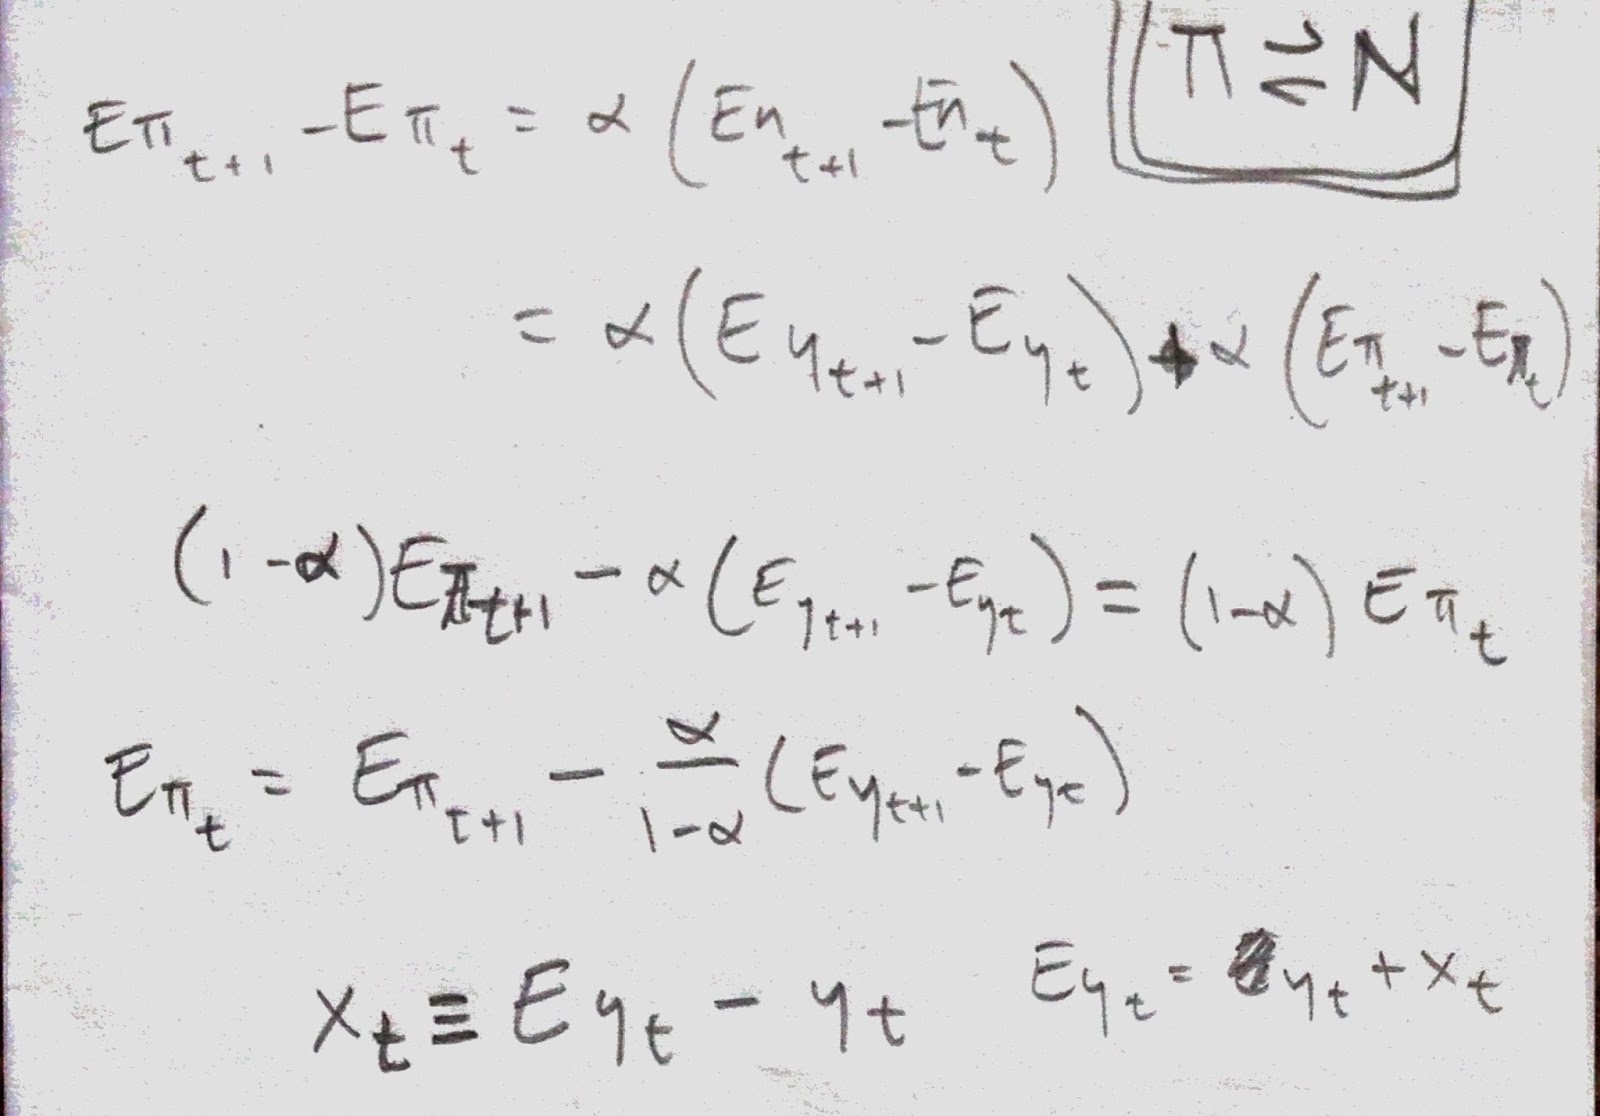 π ⇄ N
Eπ_{t+1} - Eπ_t = α(En_{t+1} - En_t)
= α(Ey_{t+1} - Ey_t) + α(Eπ_{t+1} - Eπ_t)
(1-α)Eπ_{t+1} - α(Ey_{t+1} - Ey_t) = (1-α)Eπ_t
Eπ_t = Eπ_{t+1} - α/(1-α) (Ey_{t+1} - Ey_t)
x_t ≡ Ey_t - y_t    Ey_t = y_t + x_t